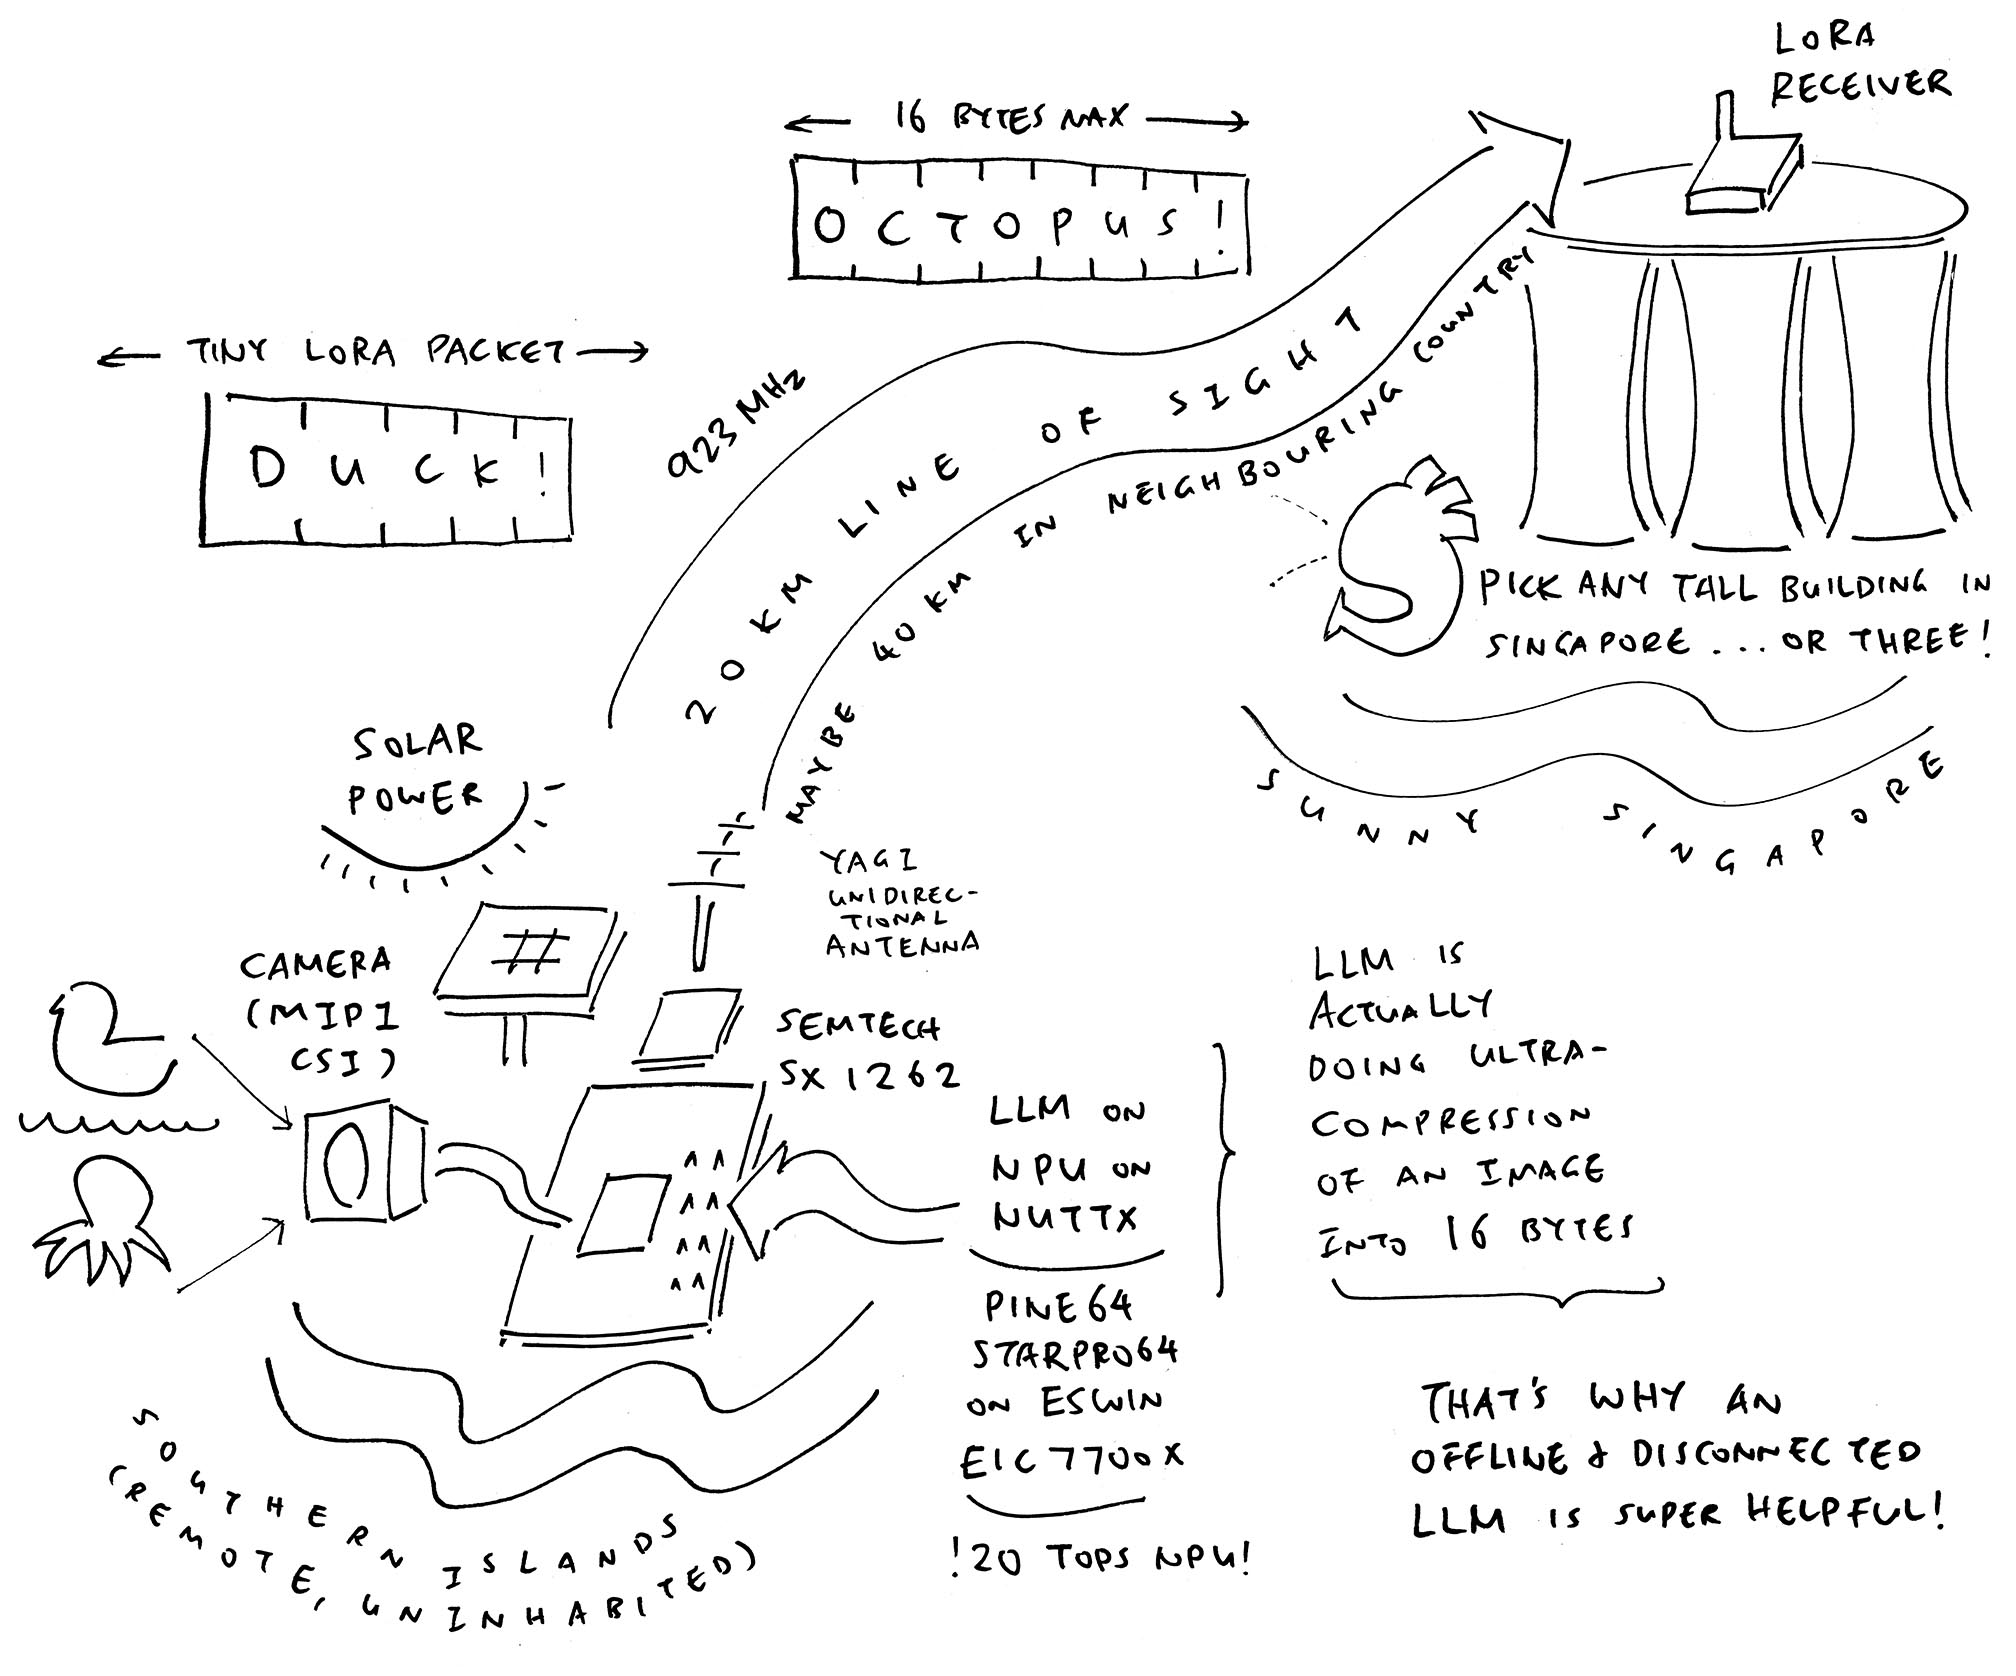 LORA
RECEIVER
16 BYTES MAX
OCTOPUS!
TINY LORA PACKET
DUCK!
923 MHz
20 KM LINE OF SIGHT
MAYBE 40 KM IN NEIGHBOURING COUNTRY
PICK ANY TALL BUILDING IN
SINGAPORE ... OR THREE!
SUNNY SINGAPORE
SOLAR
POWER
YAGI
UNIDIREC-
TIONAL
ANTENNA
CAMERA
(MIPI
CSI)
SEMTECH
SX1262
LLM ON
NPU ON
NUTTX
PINE64
STARPRO64
ON ESWIN
EIC7700X
!20 TOPS NPU!
LLM IS
ACTUALLY
DOING ULTRA-
COMPRESSION
OF AN IMAGE
INTO 16 BYTES
THAT'S WHY AN
OFFLINE & DISCONNECTED
LLM IS SUPER HELPFUL!
SOUTHERN ISLANDS
(REMOTE, UNINHABITED)